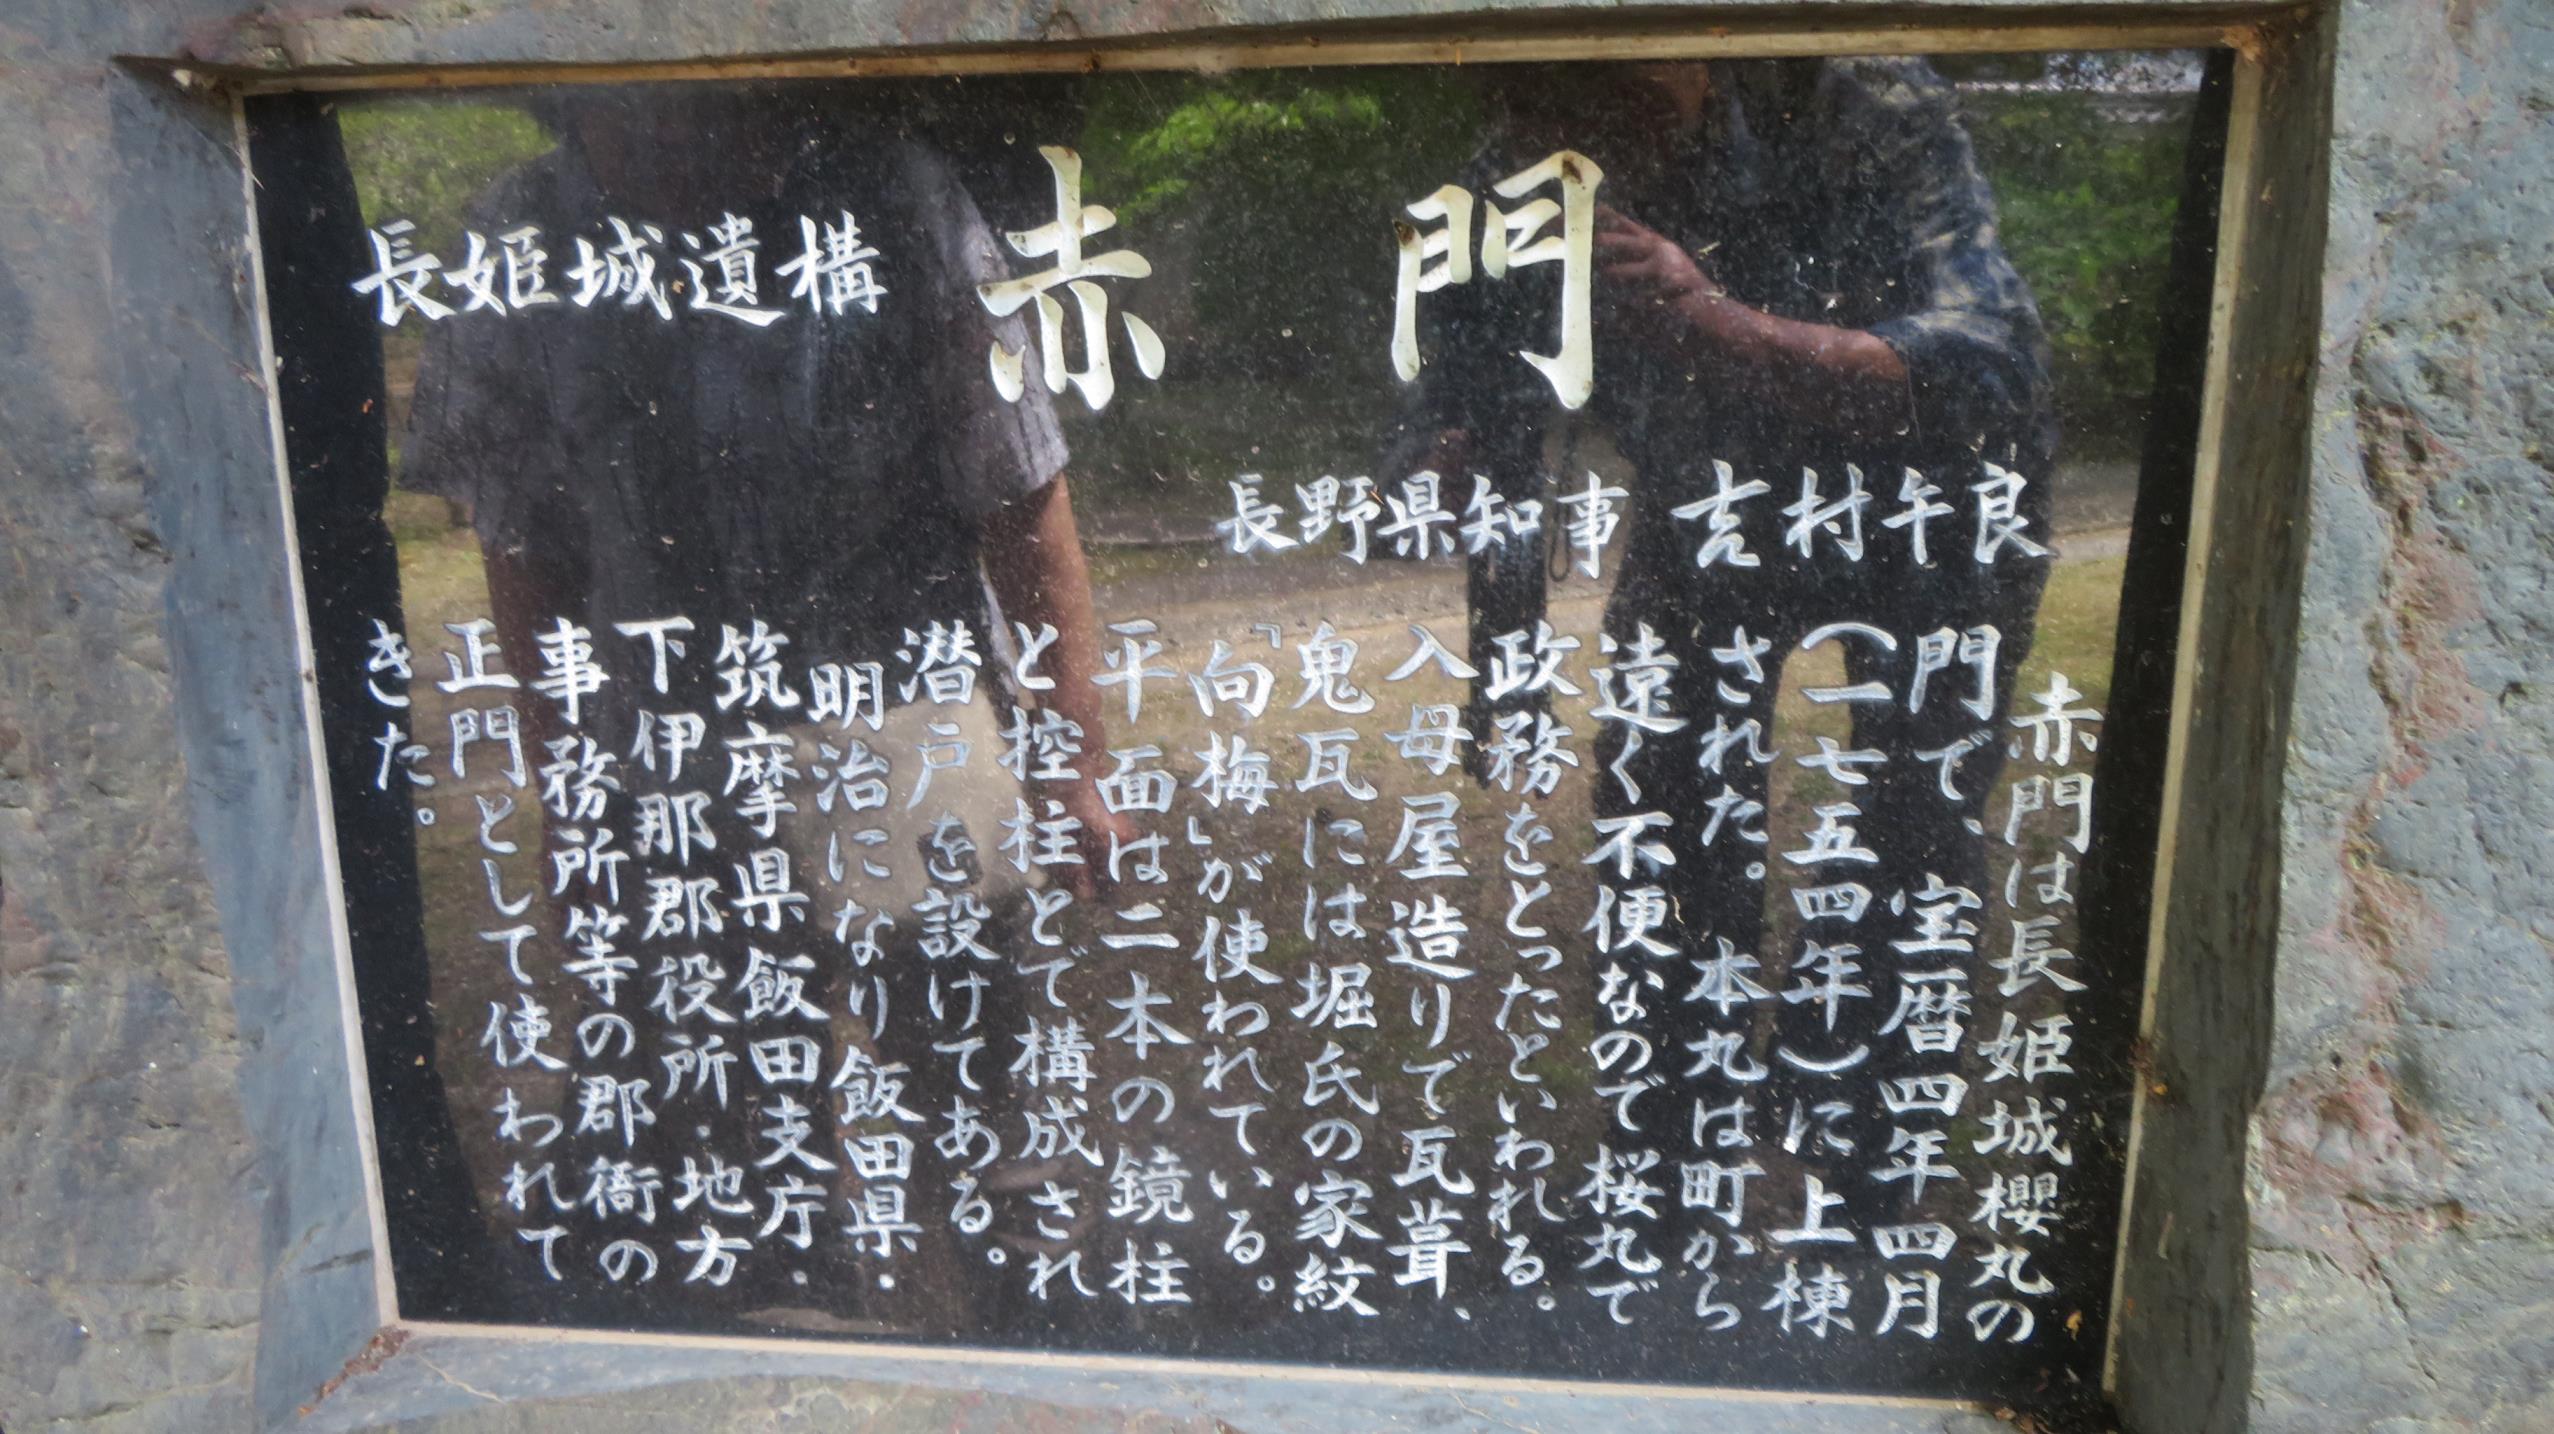 長姫城遺構
赤門
長野県知事 吉村午良
赤門は長姫城櫻丸の
門で、宝暦四年四月
(一七五四年)に上棟
された。本丸は町から
遠く不便なので桜丸で
政務をとったといわれる。
入母屋造りで瓦葺、
鬼瓦には堀氏の家紋
「向梅」が使われている。
平面は二本の鏡柱
と控柱とで構成され
潜戸を設けてある。
明治になり飯田県・
筑摩県飯田支庁・
下伊那郡役所・地方
事務所等の郡衙の
正門として使われて
きた。